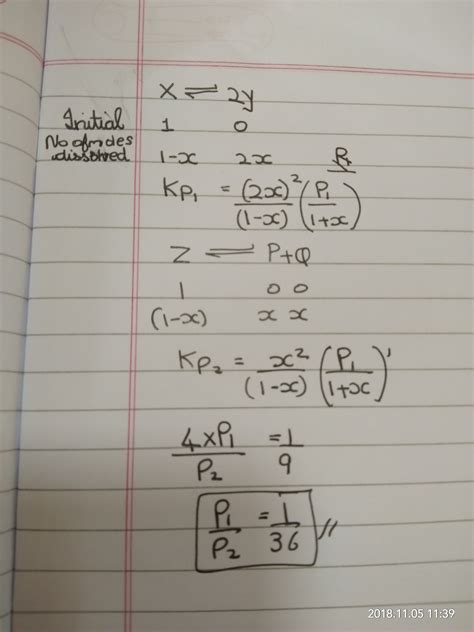 x ⇌ 2y
Initial 1 0
No of moles
dissolved 1-x 2x P₁
Kp₁ = (2x)²/(1-x) (P₁/1+x)
Z ⇌ P+Q
1 0 0
(1-x) x x
Kp₂ = x²/(1-x) (P₁/1+x)'
4×P₁/P₂ = 1/9
P₁/P₂ = 1/36 //
2018.11.05 11:39